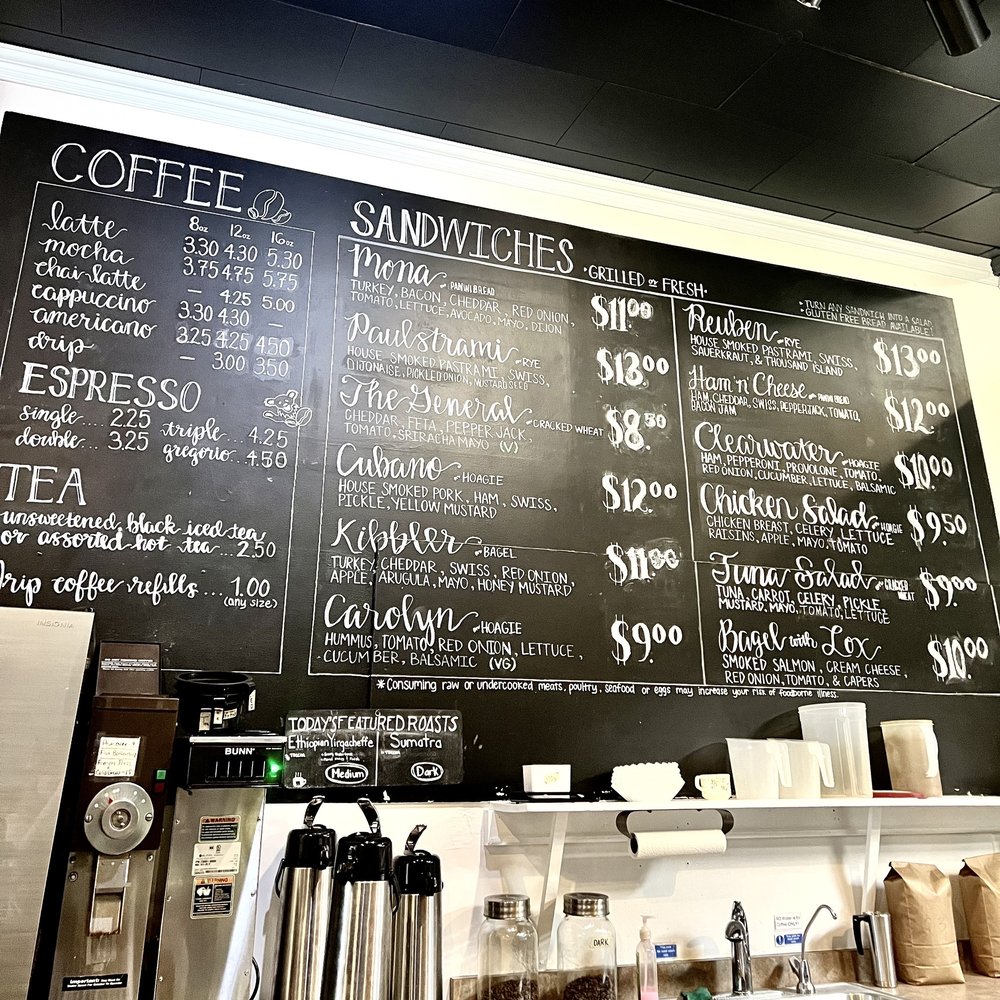 COFFEE
8oz 12oz 16oz
latte 3.30 4.30 5.30
mocha 3.75 4.75 5.75
chai latte – 4.25 5.00
cappuccino 3.30 4.30 –
americano 3.25 4.25 4.50
drip – 3.00 3.50
ESPRESSO
single.... 2.25
double... 3.25
triple... 4.25
gregorio... 4.50
TEA
unsweetened black iced tea
or assorted hot tea... 2.50
Drip coffee refills.... 1.00
(any size)
SANDWICHES
• GRILLED or FRESH •
• TURN ANY SANDWICH INTO A SALAD
• GLUTEN FREE BREAD AVAILABLE!
Mona PANINI BREAD $11.00
TURKEY, BACON, CHEDDAR, RED ONION,
TOMATO, LETTUCE, AVOCADO, MAYO, DIJON
Paulstrami RYE $13.00
HOUSE SMOKED PASTRAMI, SWISS,
DIJONAISE, PICKLED ONION, MUSTARD SEED
The General CRACKED WHEAT $8.50
CHEDDAR, FETA, PEPPER JACK,
TOMATO, SRIRACHA MAYO (V)
Cubano HOAGIE $12.00
HOUSE SMOKED PORK, HAM, SWISS,
PICKLE, YELLOW MUSTARD
Kibbler BAGEL $11.00
TURKEY, CHEDDAR, SWISS, RED ONION,
APPLE, ARUGULA, MAYO, HONEY MUSTARD
Carolyn HOAGIE $9.00
HUMMUS, TOMATO, RED ONION, LETTUCE,
CUCUMBER, BALSAMIC (VG)
Reuben RYE $13.00
HOUSE SMOKED PASTRAMI, SWISS,
SAUERKRAUT, & THOUSAND ISLAND
Ham 'n' Cheese PANINI BREAD $12.00
HAM, CHEDDAR, SWISS, PEPPERJACK, TOMATO,
BACON JAM
Clearwater HOAGIE $10.00
HAM, PEPPERONI, PROVOLONE, TOMATO,
RED ONION, CUCUMBER, LETTUCE, BALSAMIC
Chicken Salad HOAGIE $9.50
CHICKEN BREAST, CELERY, LETTUCE
RAISINS, APPLE, MAYO, TOMATO
Tuna Salad CRACKED WHEAT $9.00
TUNA, CARROT, CELERY, PICKLE,
MUSTARD, MAYO, TOMATO, LETTUCE
Bagel with Lox $10.00
SMOKED SALMON, CREAM CHEESE,
RED ONION, TOMATO, & CAPERS
*Consuming raw or undercooked meats, poultry, seafood or eggs may increase your risk of foodborne illness.
INSIGNIA
BUNN
TODAY'S FEATURED ROASTS
Ethiopian Yirgacheffe
Medium
Sumatra
Dark
WARNING
WARNING
DARK